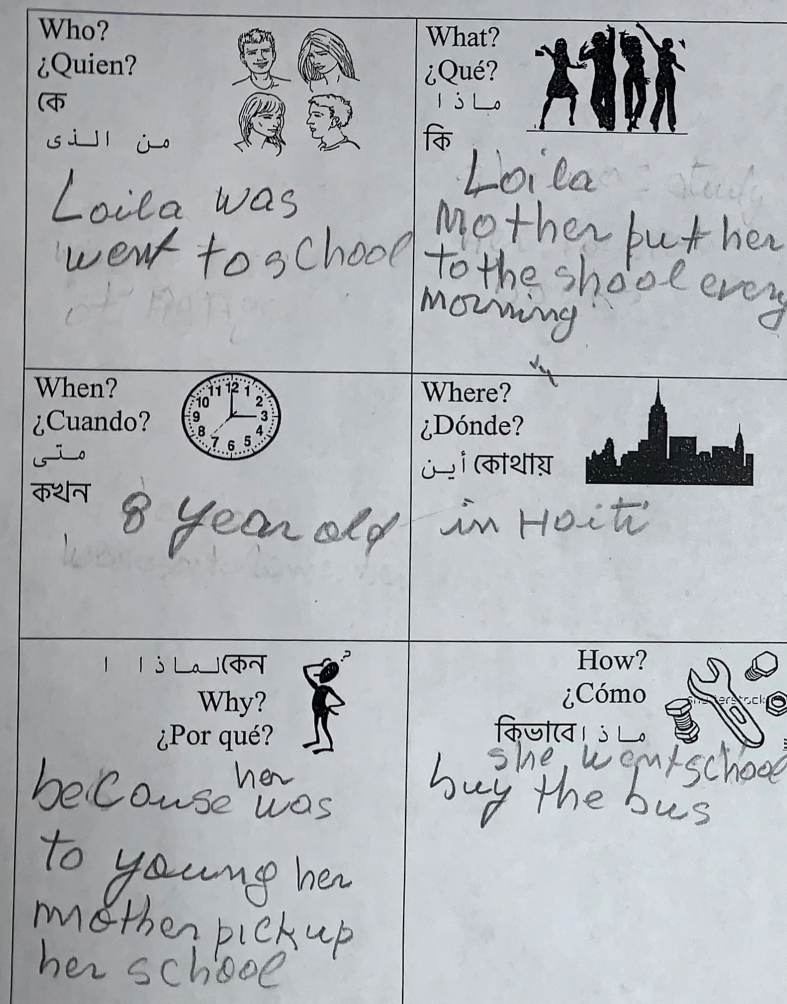 Who?
¿Quien?
কে
من الذى
Loila was
went to school
What?
¿Qué?
ماذا
কি
Loila
Mother put her
to the shool every
morning
When?
¿Cuando?
متى
কখন
11 12 1
10 2
9 3
8 4
7 6 5
8 year old
Where?
¿Dónde?
أين কোথায়
in Haiti
لماذا ا কেন
Why?
¿Por qué?
because her was
to young her
mother pick up
her school
How?
¿Cómo
কিভাবে ماذا
shutterstock
she went school
buy the bus